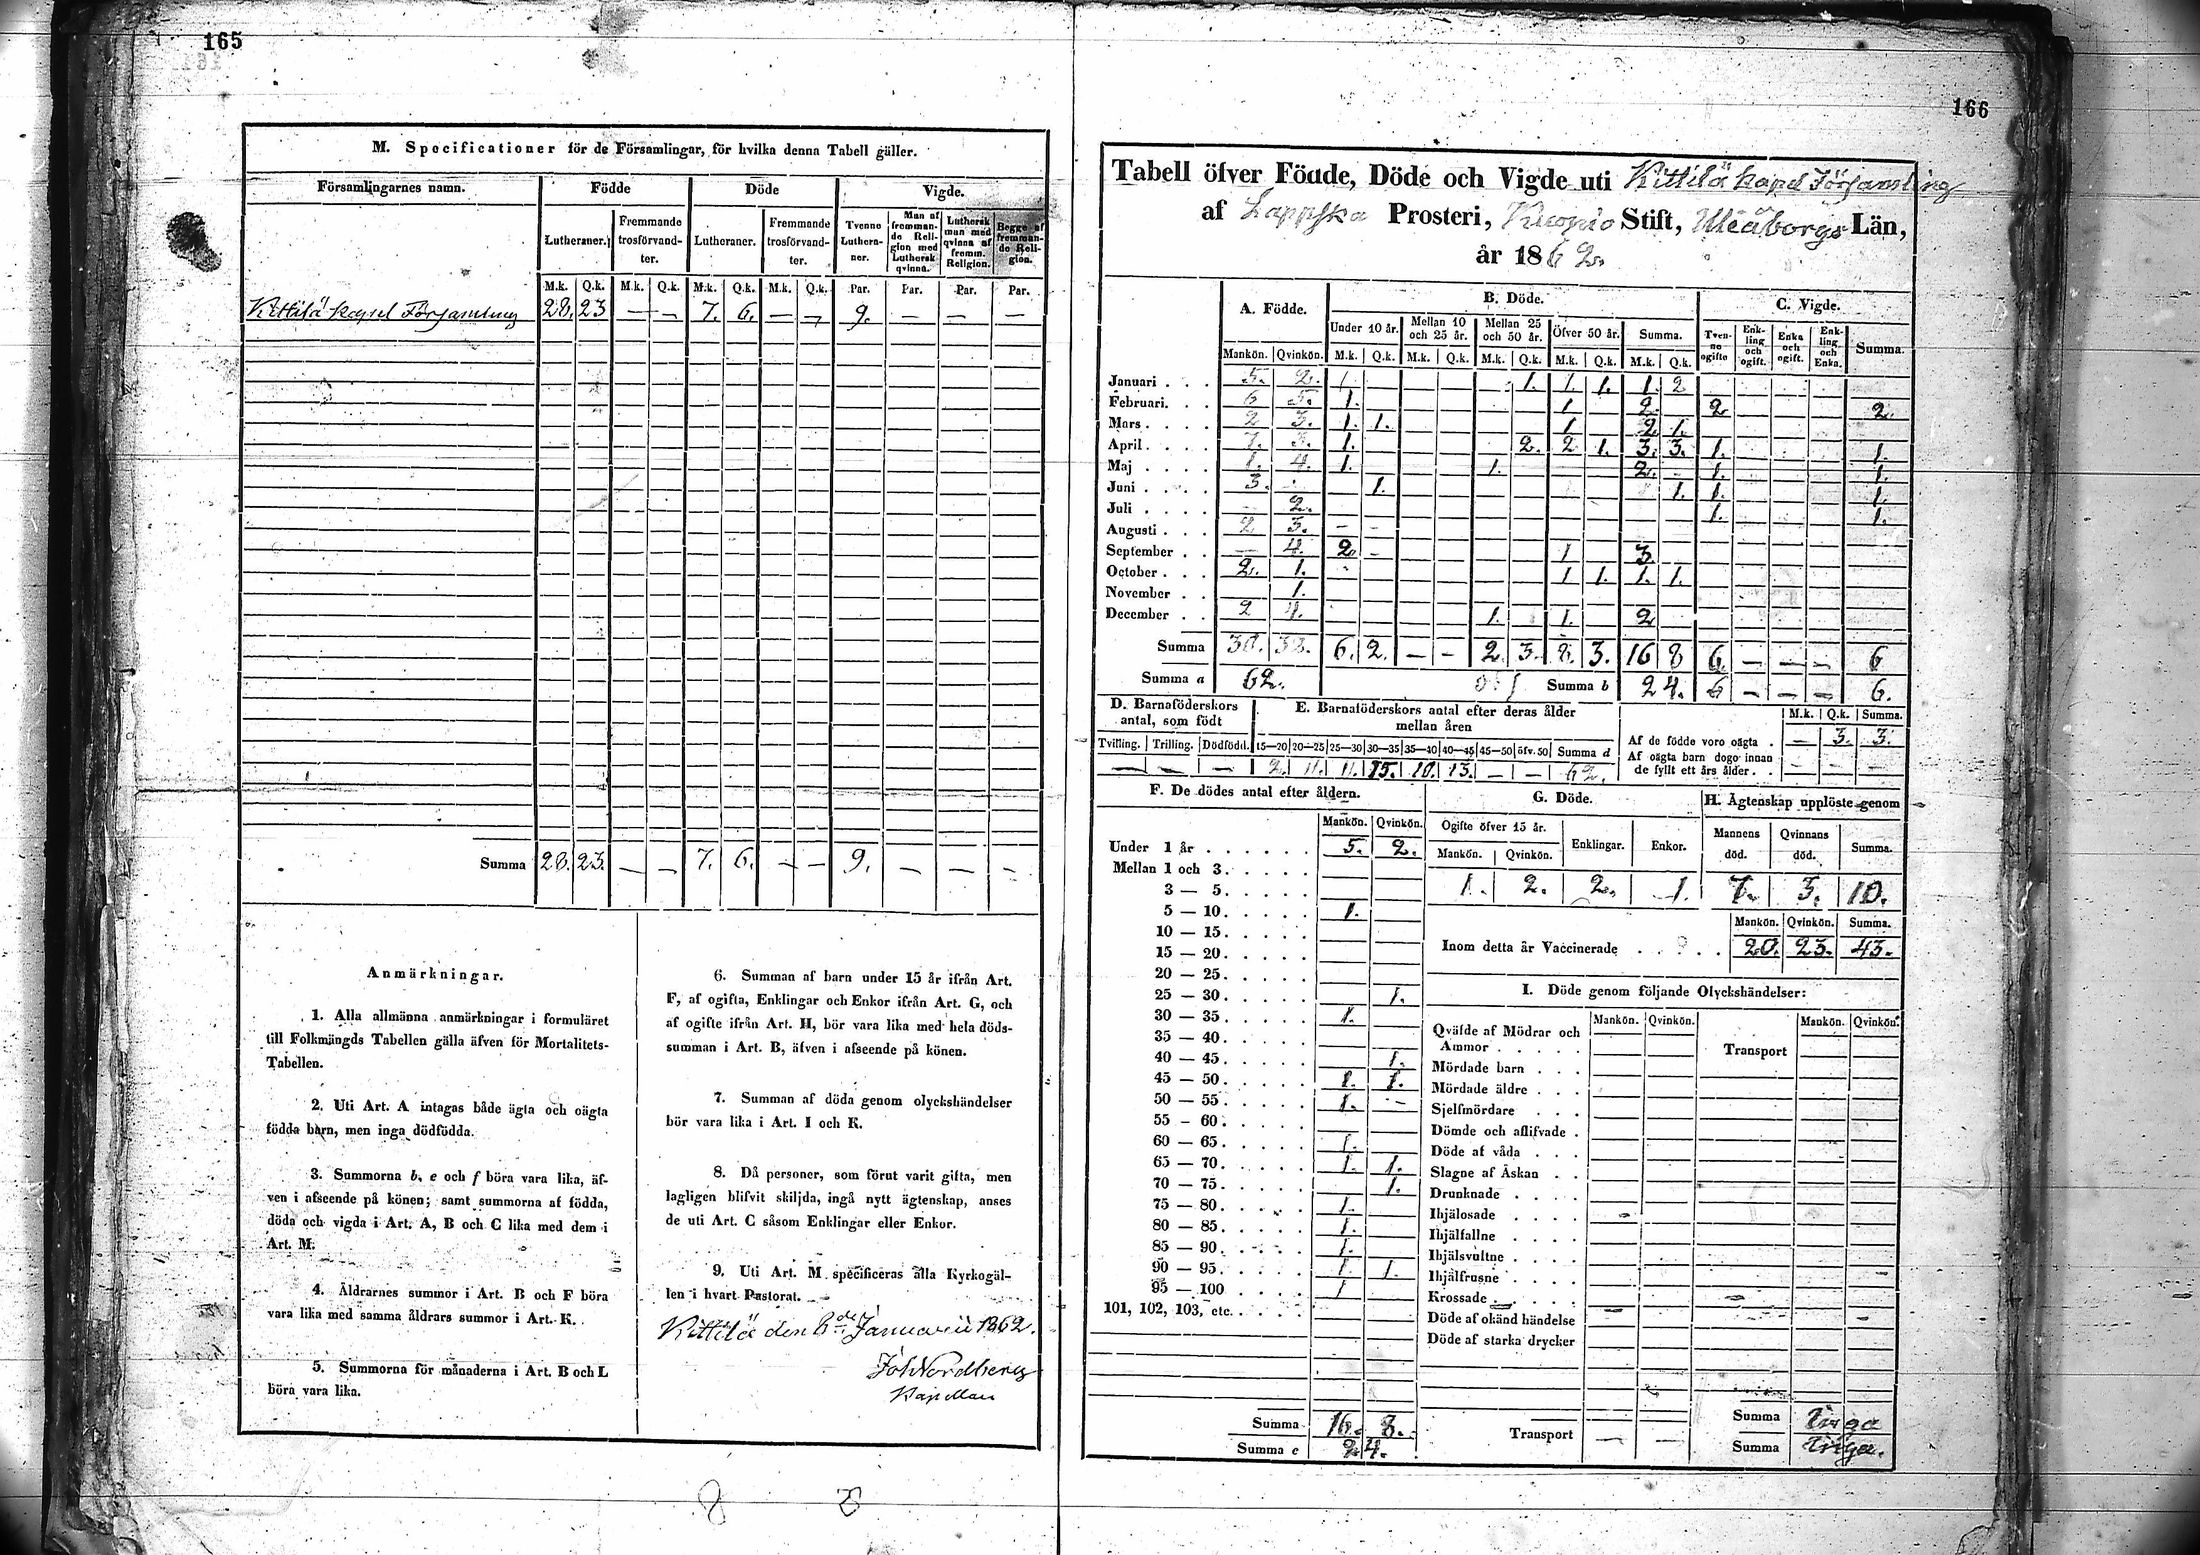 165
M. Specificationer för de Församlingar, för hvilka denna Tabell gäller.
Församlingarnes namn. Födde Döde Vigde.
Lutheraner. Fremmande trosförvandter. Lutheraner. Fremmande trosförvandter. Tvenne Lutheraner. Man af fremmande Religion med Luthersk qvinna. Luthersk man med qvinna af fremm. Religion. Begge af fremmande Religion.
M.k. Q.k. M.k. Q.k. M.k. Q.k. M.k. Q.k. Par. Par. Par. Par.
Kittilä kapel Församling 28. 23 — — 7. 6. — — 9. — — —
Summa 28. 23. — — 7. 6. — — 9. — — —
Anmärkningar.
1. Alla allmänna anmärkningar i formuläret
till Folkmängds Tabellen gälla äfven för Mortalitets-
Tabellen.
2. Uti Art. A intagas både ägta och oägta
födda barn, men inga dödfödda.
3. Summorna b, e och f böra vara lika, äf-
ven i afseende på könen; samt summorna af födda,
döda och vigda i Art. A, B och C lika med dem i
Art. M.
4. Äldrarnes summor i Art. B och F böra
vara lika med samma åldrars summor i Art. K.
5. Summorna för månaderna i Art. B och L
böra vara lika.
6. Summan af barn under 15 år ifrån Art.
F, af ogifta, Enklingar och Enkor ifrån Art. G, och
af ogifte ifrån Art. H, bör vara lika med hela döds-
summan i Art. B, äfven i afseende på könen.
7. Summan af döda genom olyckshändelser
bör vara lika i Art. I och K.
8. Då personer, som förut varit gifta, men
lagligen blifvit skiljda, ingå nytt ägtenskap, anses
de uti Art. C såsom Enklingar eller Enkor.
9. Uti Art. M specificeras alla Kyrkogäl-
len i hvart Pastorat.
Kittilä den 8de Januarii 1862.
Joh Nordberg
Kapellan
166
Tabell öfver Födde, Döde och Vigde uti Kittilä kapel Församling
af Lappska Prosteri, Kuopio Stift, Uleåborgs Län,
år 1862.
A. Födde. B. Döde. C. Vigde.
Under 10 år. Mellan 10 och 25 år. Mellan 25 och 50 år. Öfver 50 år. Summa. Tvenne ogifte Enkling och ogift. Enka och ogift. Enkling och Enka. Summa.
Mankön. Qvinkön. M.k. Q.k. M.k. Q.k. M.k. Q.k. M.k. Q.k. M.k. Q.k.
Januari . . . 5. 2. 1 1. 1. 1. 1. 2
Februari. . . 6 5. 1. 1 2. 2 2.
Mars . . . . 2 3. 1. 1. 1 2 1.
April . . . . 7. 3. 1. 2. 2 1. 3. 3. 1. 1.
Maj . . . . 1. 4. 1. 1. 2. 1. 1.
Juni . . . . 3. 1. 1. 1. 1
Juli . . . . — 2. 1. 1.
Augusti . . . 2 3. — —
September . . — 4. 2. — 1 3.
October . . . 2. 1. 1 1. 1. 1.
November . . 1.
December . . 2 4. 1. 1. 2
Summa 30. 32. 6. 2. — — 2. 3. 8. 3. 16 8 6. — — — 6
Summa a 62. Summa b 24. 6 — — — 6.
D. Barnaföderskors antal, som födt
Tvilling. Trilling. Dödfödd.
— — —
E. Barnaföderskors antal efter deras ålder mellan åren
15—20 20—25 25—30 30—35 35—40 40—45 45—50 öfv. 50 Summa d
2. 11. 11. 15. 10. 13. — — 62.
M.k. Q.k. Summa.
Af de födde voro oägta . — 3. 3.
Af oägta barn dogo innan
de fyllt ett års ålder . . — — —
F. De dödes antal efter åldern.
Mankön. Qvinkön.
Under 1 år . . . . . . 5. 2.
Mellan 1 och 3 . . . . .
3 — 5 . . . . .
5 — 10 . . . . . 1.
10 — 15 . . . . .
15 — 20 . . . . .
20 — 25 . . . . .
25 — 30 . . . . . 1.
30 — 35 . . . . . 1.
35 — 40 . . . . .
40 — 45 . . . . . 1.
45 — 50 . . . . . 1. 1.
50 — 55 . . . . . 1. —
55 — 60 . . . . .
60 — 65 . . . . . 1.
65 — 70 . . . . . 1. 1.
70 — 75 . . . . . 1.
75 — 80 . . . . . 1.
80 — 85 . . . . . 1.
85 — 90 . . . . . 1.
90 — 95 . . . . . 1 1.
95 — 100 . . . . . 1
101, 102, 103, etc. . . . .
Summa 16. 8.
Summa e 24.
G. Döde.
Ogifte öfver 15 år. Enklingar. Enkor.
Mankön. Qvinkön.
1. 2. 2. 1.
H. Ägtenskap upplöste genom
Mannens död. Qvinnans död. Summa.
7. 3. 10.
Mankön. Qvinkön. Summa.
Inom detta år Vaccinerade . . . . 20. 23. 43.
I. Döde genom följande Olyckshändelser:
Mankön. Qvinkön. Mankön. Qvinkön.
Qväfde af Mödrar och
Ammor . . . . . Transport
Mördade barn . . .
Mördade äldre . . .
Sjelfmördare . . .
Dömde och aflifvade .
Döde af våda . . .
Slagne af Åskan . .
Drunknade . . . .
Ihjälosade . . . .
Ihjälfallne . . . .
Ihjälsvultne . . . .
Ihjälfrusne . . . .
Krossade . . . . .
Döde af okänd händelse
Döde af starka drycker
Transport — —
Summa Inga
Summa Inga.